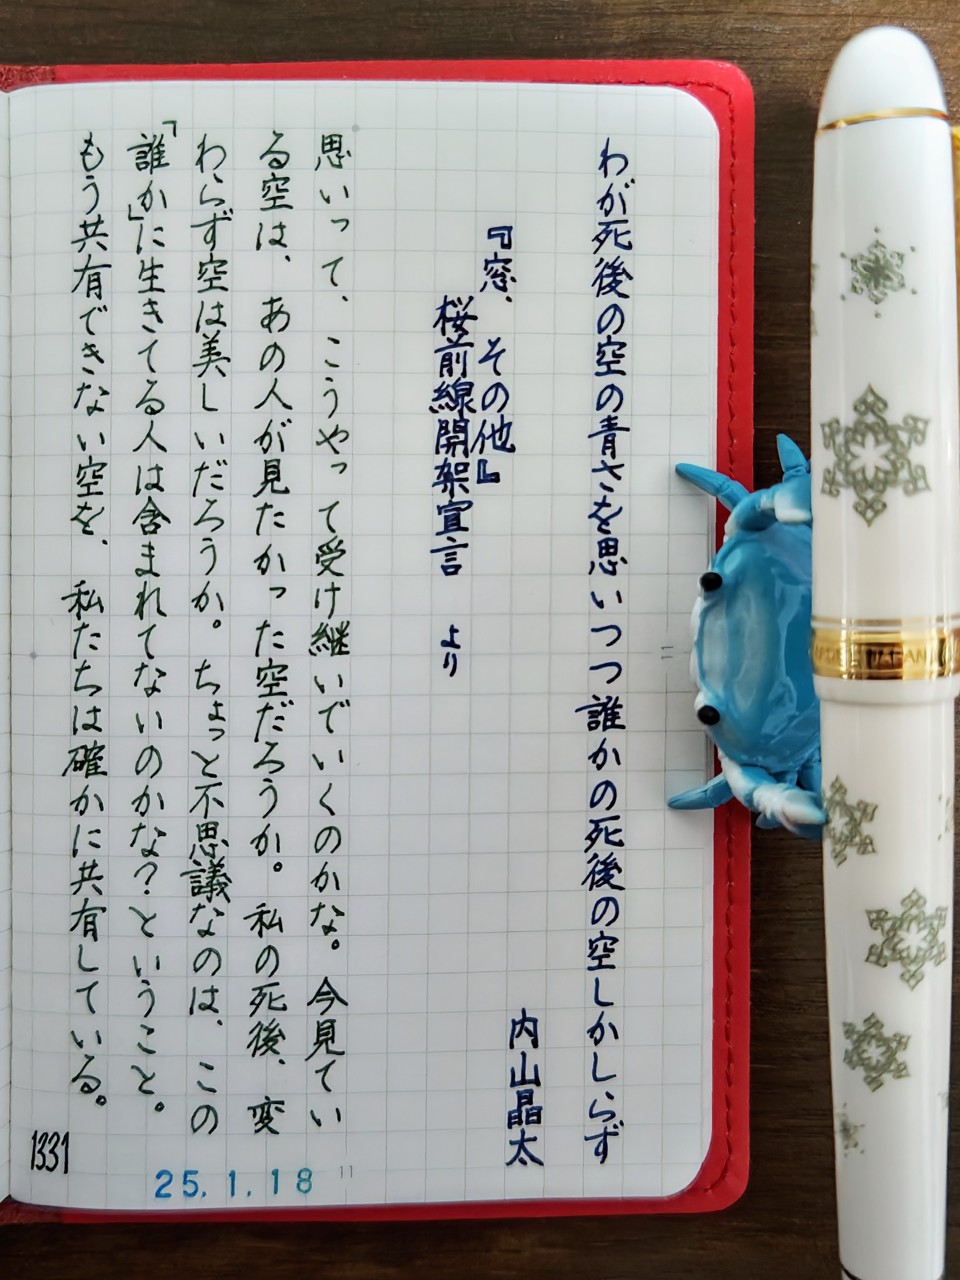 わが死後の空の青さを思いつつ誰かの死後の空しかしらず
内山晶太
『窓、その他』
桜前線開架宣言 より
思いって、こうやって受け継いでいくのかな。今見てい
る空は、あの人が見たかった空だろうか。私の死後、変
わらず空は美しいだろうか。ちょっと不思議なのは、この
「誰か」に生きてる人は含まれてないのかな？ということ。
もう共有できない空を、私たちは確かに共有している。
1331
25.1.18